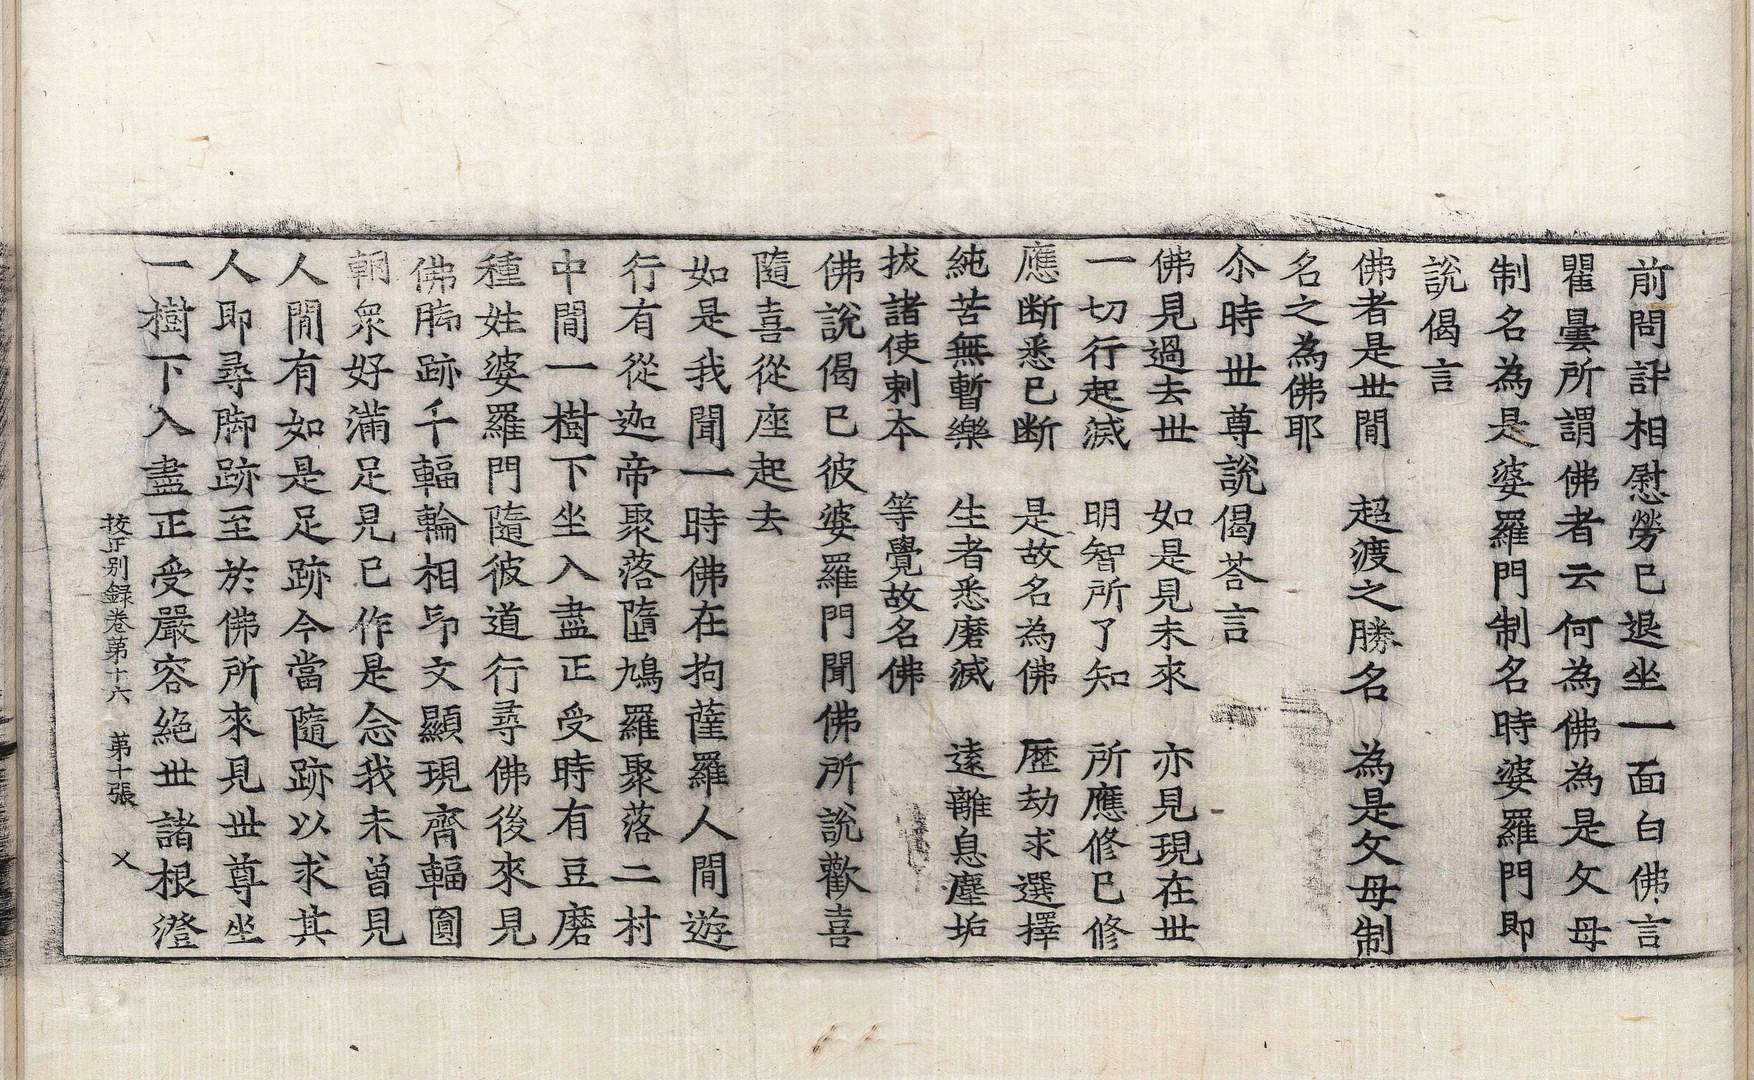 前問訊相慰勞已退坐一面白佛言
瞿曇所謂佛者云何為佛為是父母
制名為是婆羅門制名時婆羅門即
說偈言
佛者是世間　超渡之勝名　為是父母制
名之為佛耶
尒時世尊說偈荅言
佛見過去世　如是見未來　亦見現在世
一切行起滅　明智所了知　所應修已修
應断悉已断　是故名為佛　歷劫求選擇
純苦無暫樂　生者悉磨滅　遠離息塵垢
拔諸使刺夲　等覺故名佛
佛說偈已彼婆羅門聞佛所說歡喜
隨喜從座起去
如是我聞一時佛在拘薩羅人間遊
行有從迦帝聚落墮鳩羅聚落二村
中間一樹下坐入盡正受時有豆磨
種姓婆羅門隨彼道行尋佛後來見
佛脚跡千輻輪相印文顯現齊輻圓
輞衆好滿足見已作是念我未曾見
人間有如是足跡今當隨跡以求其
人即尋脚跡至於佛所來見世尊坐
一樹下入盡正受嚴容絶世諸根澄
挍正别録卷第十六　第十張　㐅